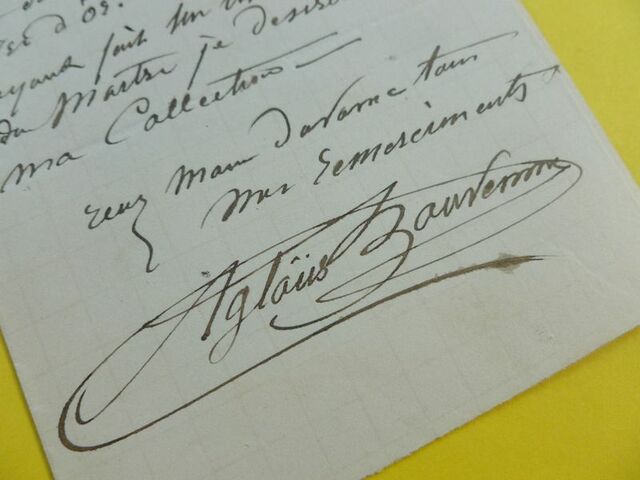 d'Os.
ayant fait un
du Martre je desire
ma Collection
Recevez Mon d'avance tous
mes remerciments
Aglaüs Bouvenne